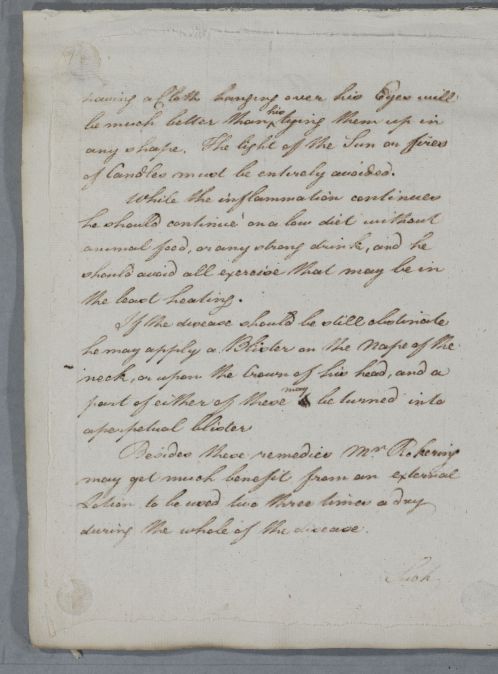 having a Cloth hanging over his Eyes will
be much better than his tying them up in
any shape. The light of the Sun or fires
of Candles must be entirely avoided.
While the inflammation continues
he should continue on a low diet without
animal food, or any strong drink, and he
should avoid all exercise that may be in
the least heating.
If the disease should be still obstinate
he may apply a Blister on the Nape of the
neck, or upon the Crown of his head, and a
part of either of these may be turned into
a perpetual blister
Besides these remedies Mr.
may get much benefit from an external
Lotion to be used two three times a day
during the whole of the disease.
Such